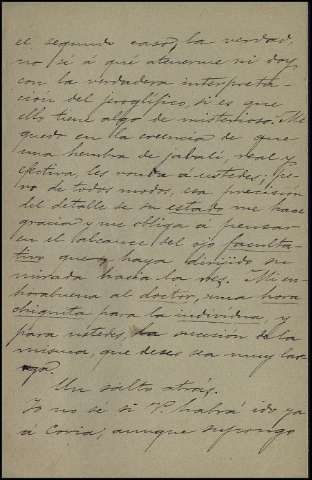 el segundo caso, la verdad,
no sé á qué atenerme ni doy
con la verdadera interpreta-
ción del jeroglífico, si es que
ello tiene algo de misterioso. Me
quedo en la creencia de que
una hembra de jabalí, real y
efectiva, les ronda á ustedes; pe-
ro de todos modos, esa precisión
del detalle de su estado me hace
gracia y me obliga á pensar
en el balance del ojo faculta-
tivo que haya dirijido su
mirada hacia la res. Mi en-
horabuena al doctor, una hora
chiquita para la individua, y
para ustedes, la sucesión de la
misma, que deseo sea muy lar-
ga.
Un salto atrás.
Yo no sé si V. habrá ido ya
á Coria; aunque supongo